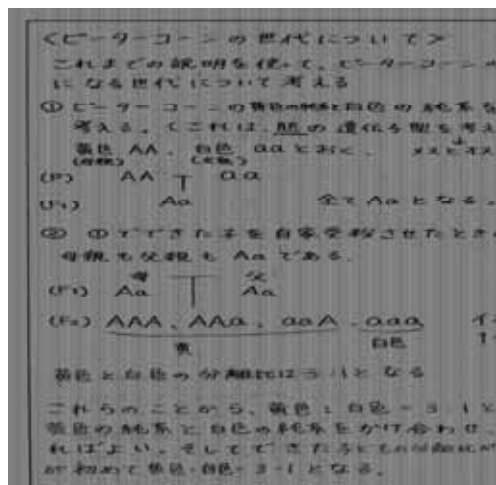 <ピーターコーンの世代について>
これまでの説明を使って、ピーターコーン
になる世代について考える
① ピーターコーンの黄色の純系と白色の純系を
考える。(これは、胚の遺伝子型を考え
黄色 AA 、 白色 aa とおく。 メスとオス
(母親) (父親)
(P) AA aa
(F1) Aa 全て Aa となる。
② ①でできた子を自家受粉させたとき
母親も父親も Aa である。
母 父
(F1) Aa Aa
(F2) AAA 、 AAa 、 aaA 、 aaa
黄 白色
黄色と白色の分離比は3:1となる
これらのことから、黄色:白色=3:1と
黄色の純系と白色の純系をかけ合わせ、
ればよい。そしてできた子
が初めて黄色:白色=3:1となる。